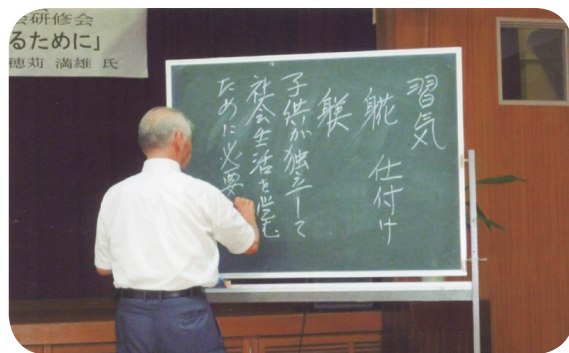 会研修会
るために」
穂苅 満雄 氏
習気
仕付け
躾
子供が独立して
社会生活を営む
ために必要